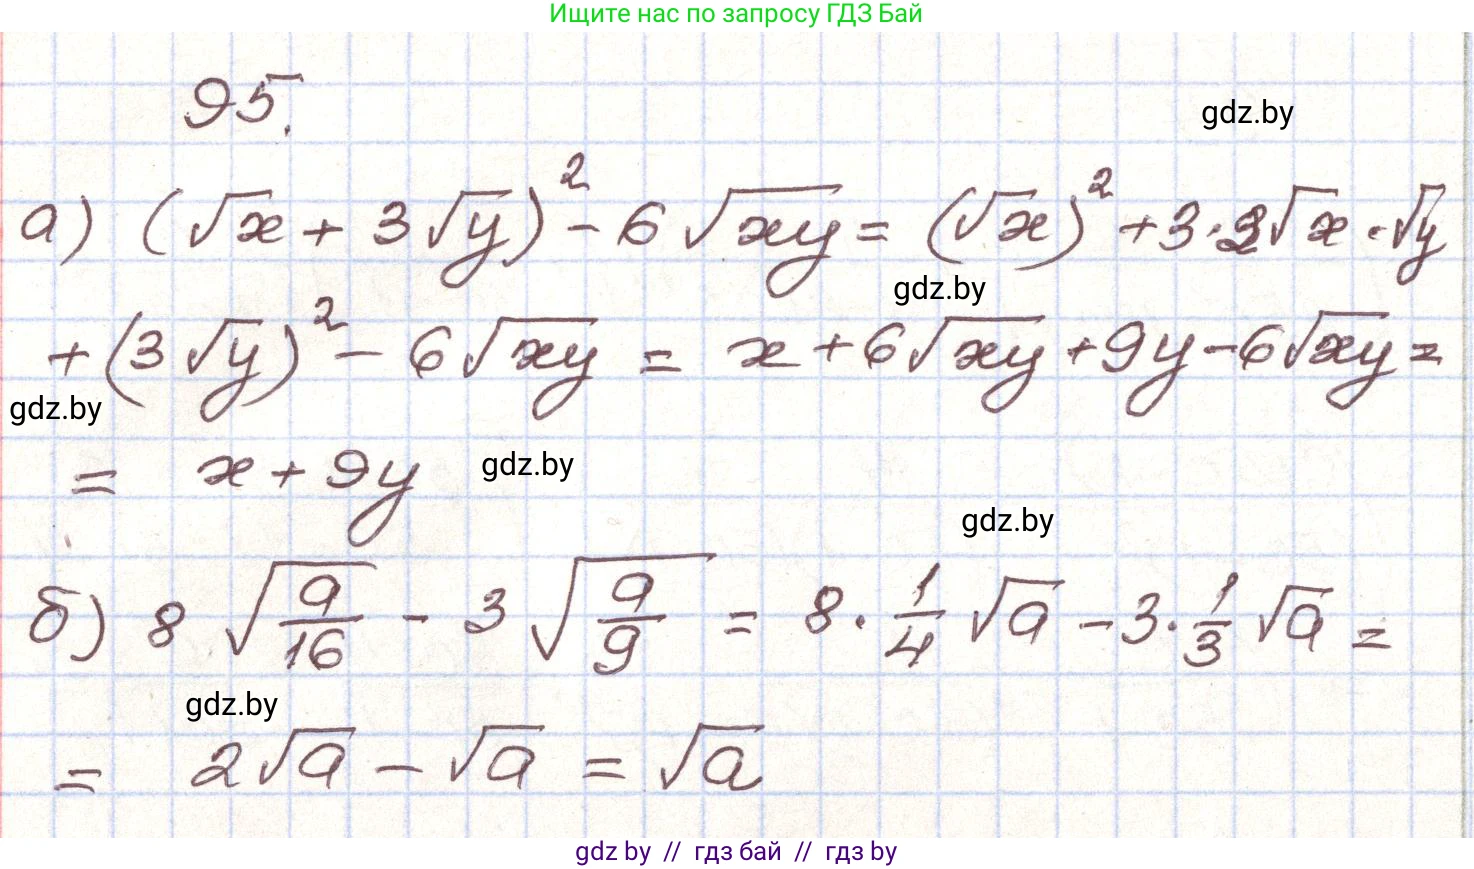 Ищите нас по запросу ГДЗ Бай
95.
gdz.by
а) (√x + 3√y)² - 6√xy = (√x)² + 3·2√x·√y
gdz.by
+ (3√y)² - 6√xy = x + 6√xy + 9y - 6√xy =
gdz.by
= x + 9y
gdz.by
gdz.by
б) 8√(a/16) - 3√(a/9) = 8·1/4√a - 3·1/3√a =
gdz.by
= 2√a - √a = √a
gdz by // гдз бай // гдз by